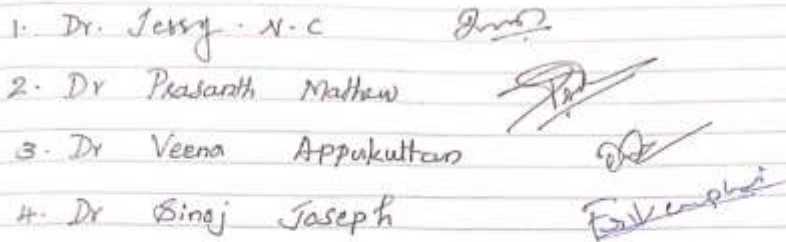 1. Dr. Jessy. N.C
2. Dr Prasanth Mathew
3. Dr Veena Appukuttan
4. Dr Sinoj Joseph